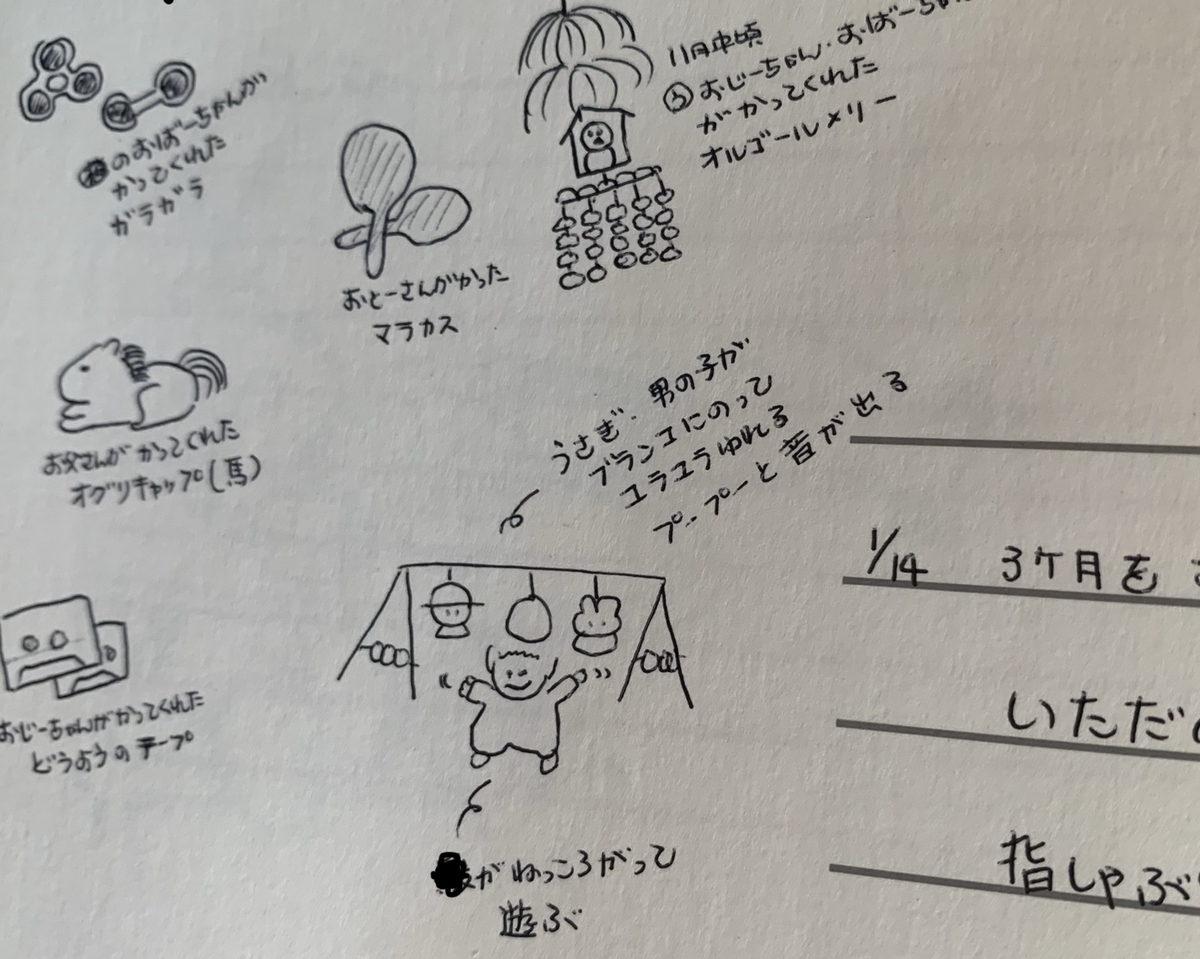 のおばーちゃんが
かってくれた
ガラガラ
おとーさんがかった
マラカス
11月中頃
う おじーちゃん・おばーちゃん
がかってくれた
オルゴールメリー
お父さんがかってくれた
オグリキャップ(馬)
うさぎ・男の子が
ブランコにのって
ユラユラゆれる
プープーと音が出る
おじーちゃんがかってくれた
どうようのテープ
がねっころがって
遊ぶ
1/14 3ケ月を
いただ
指しゃぶ